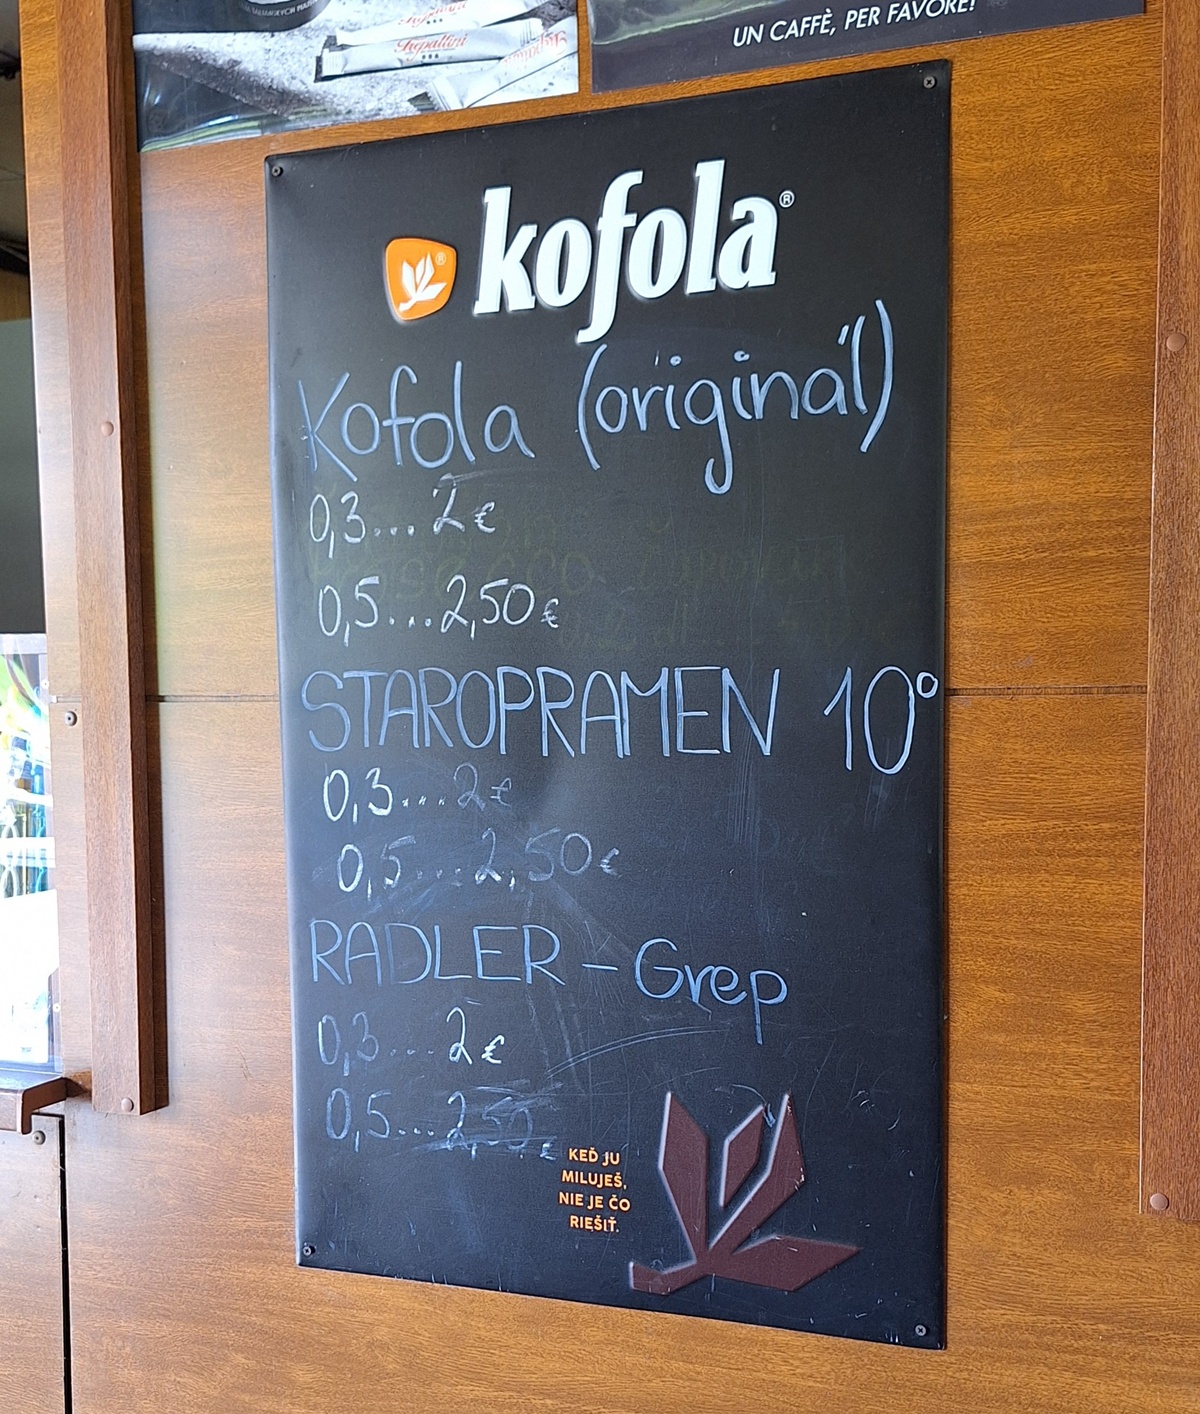 Trepallini
UN CAFFÈ, PER FAVORE!
kofola®
Kofola (originál)
0,3... 2€
0,5...2,50€
STAROPRAMEN 10°
0,3....2€
0,5...2,50€
RADLER - Grep
0,3... 2€
0,5...2,50€
KEĎ JU
MILUJEŠ,
NIE JE ČO
RIEŠIŤ.